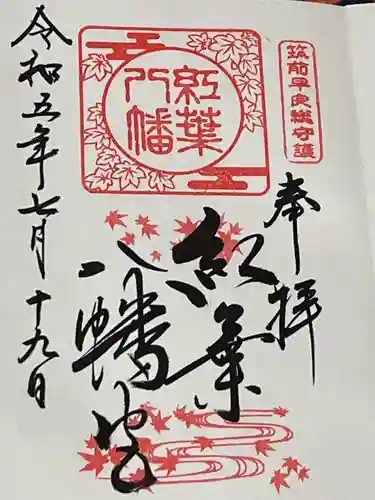 筑前早良総守護
奉拝
紅葉
八幡
紅葉
八幡宮
令和五年七月十九日